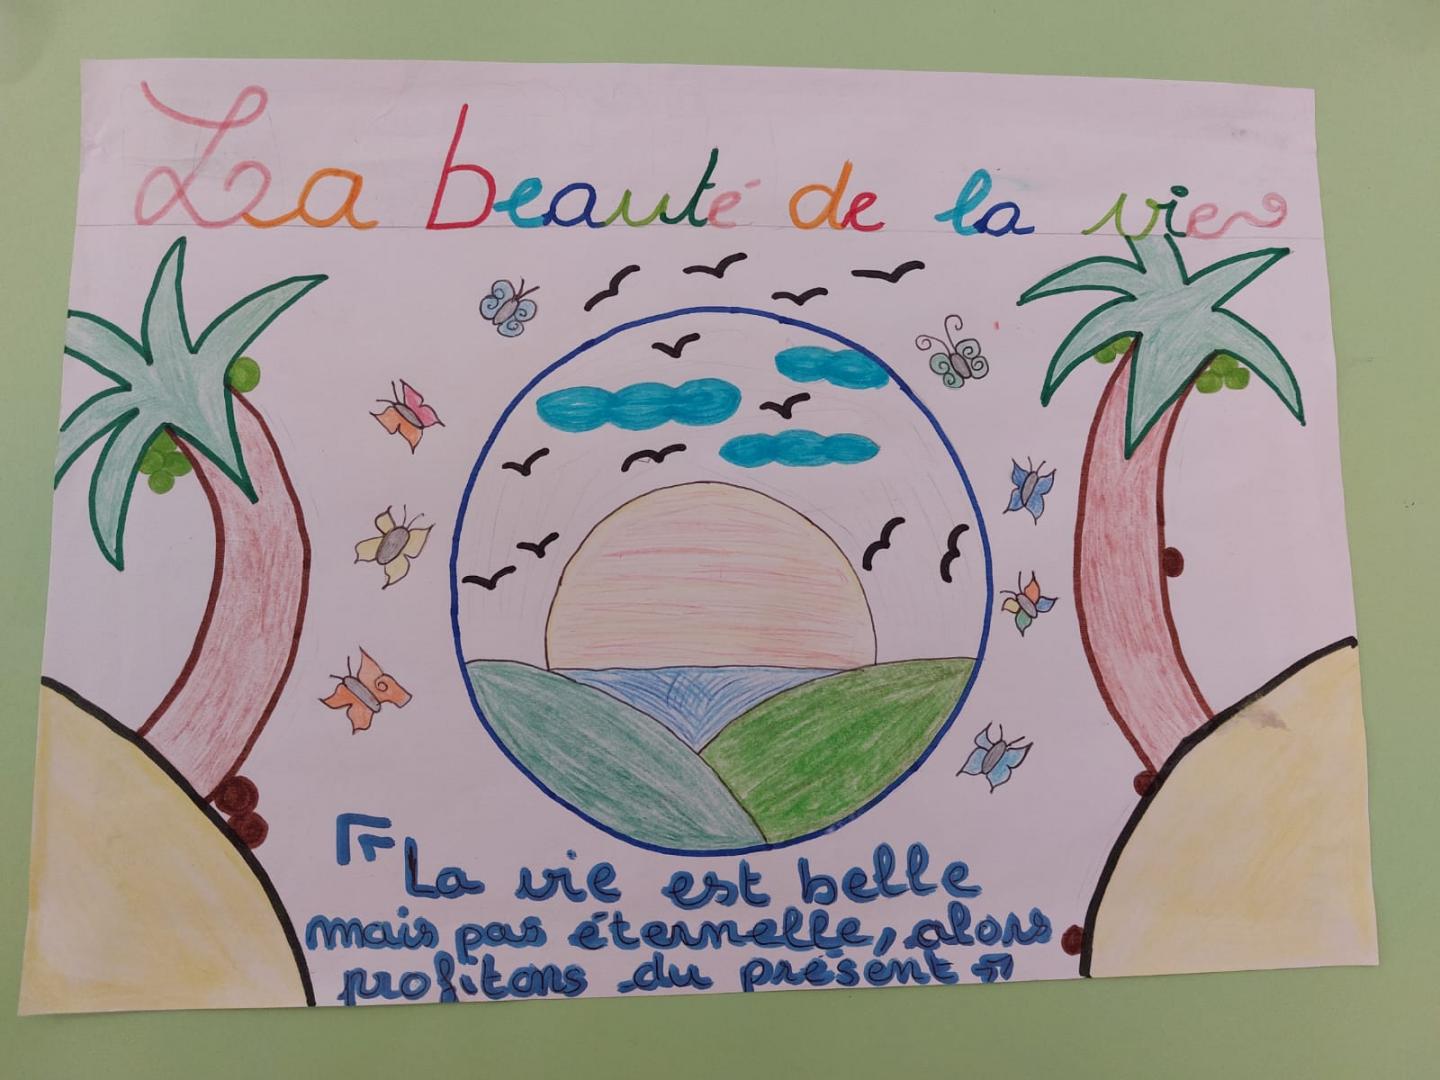 La beauté de la vie
"La vie est belle
mais pas éternelle, alors
profitons du présent"